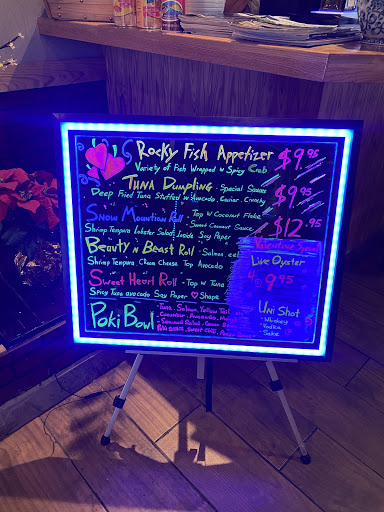 Rocky Fish Appetizer $9.95
Variety of Fish Wrapped w Spicy Crab
Tuna Dumpling - Special Sauce $9.95
Deep Fried Tuna Stuffed w Avocado, Caviar, Crunchy
Snow Mountion Roll - Top w Coconut Flake $12.95
- Sweet Coconut Sauce
Shrimp Tempura Lobster Salad, Inside Soy Paper
Beauty n Beast Roll - Salmon, eel
Shrimp Tempura Cream Cheese Top Avocado
Sweet Heart Roll - Top w Tuna
Spicy Tuna avocado Soy Paper ♡ Shape
Poki Bowl
- Tuna, Salmon, Yellow Tail
- Cucumber, Avocado,
- Seaweed Salad,
Valentine
Live Oyster
4 $9.95
Uni Shot
- Whiskey
- Vodka
- Sake